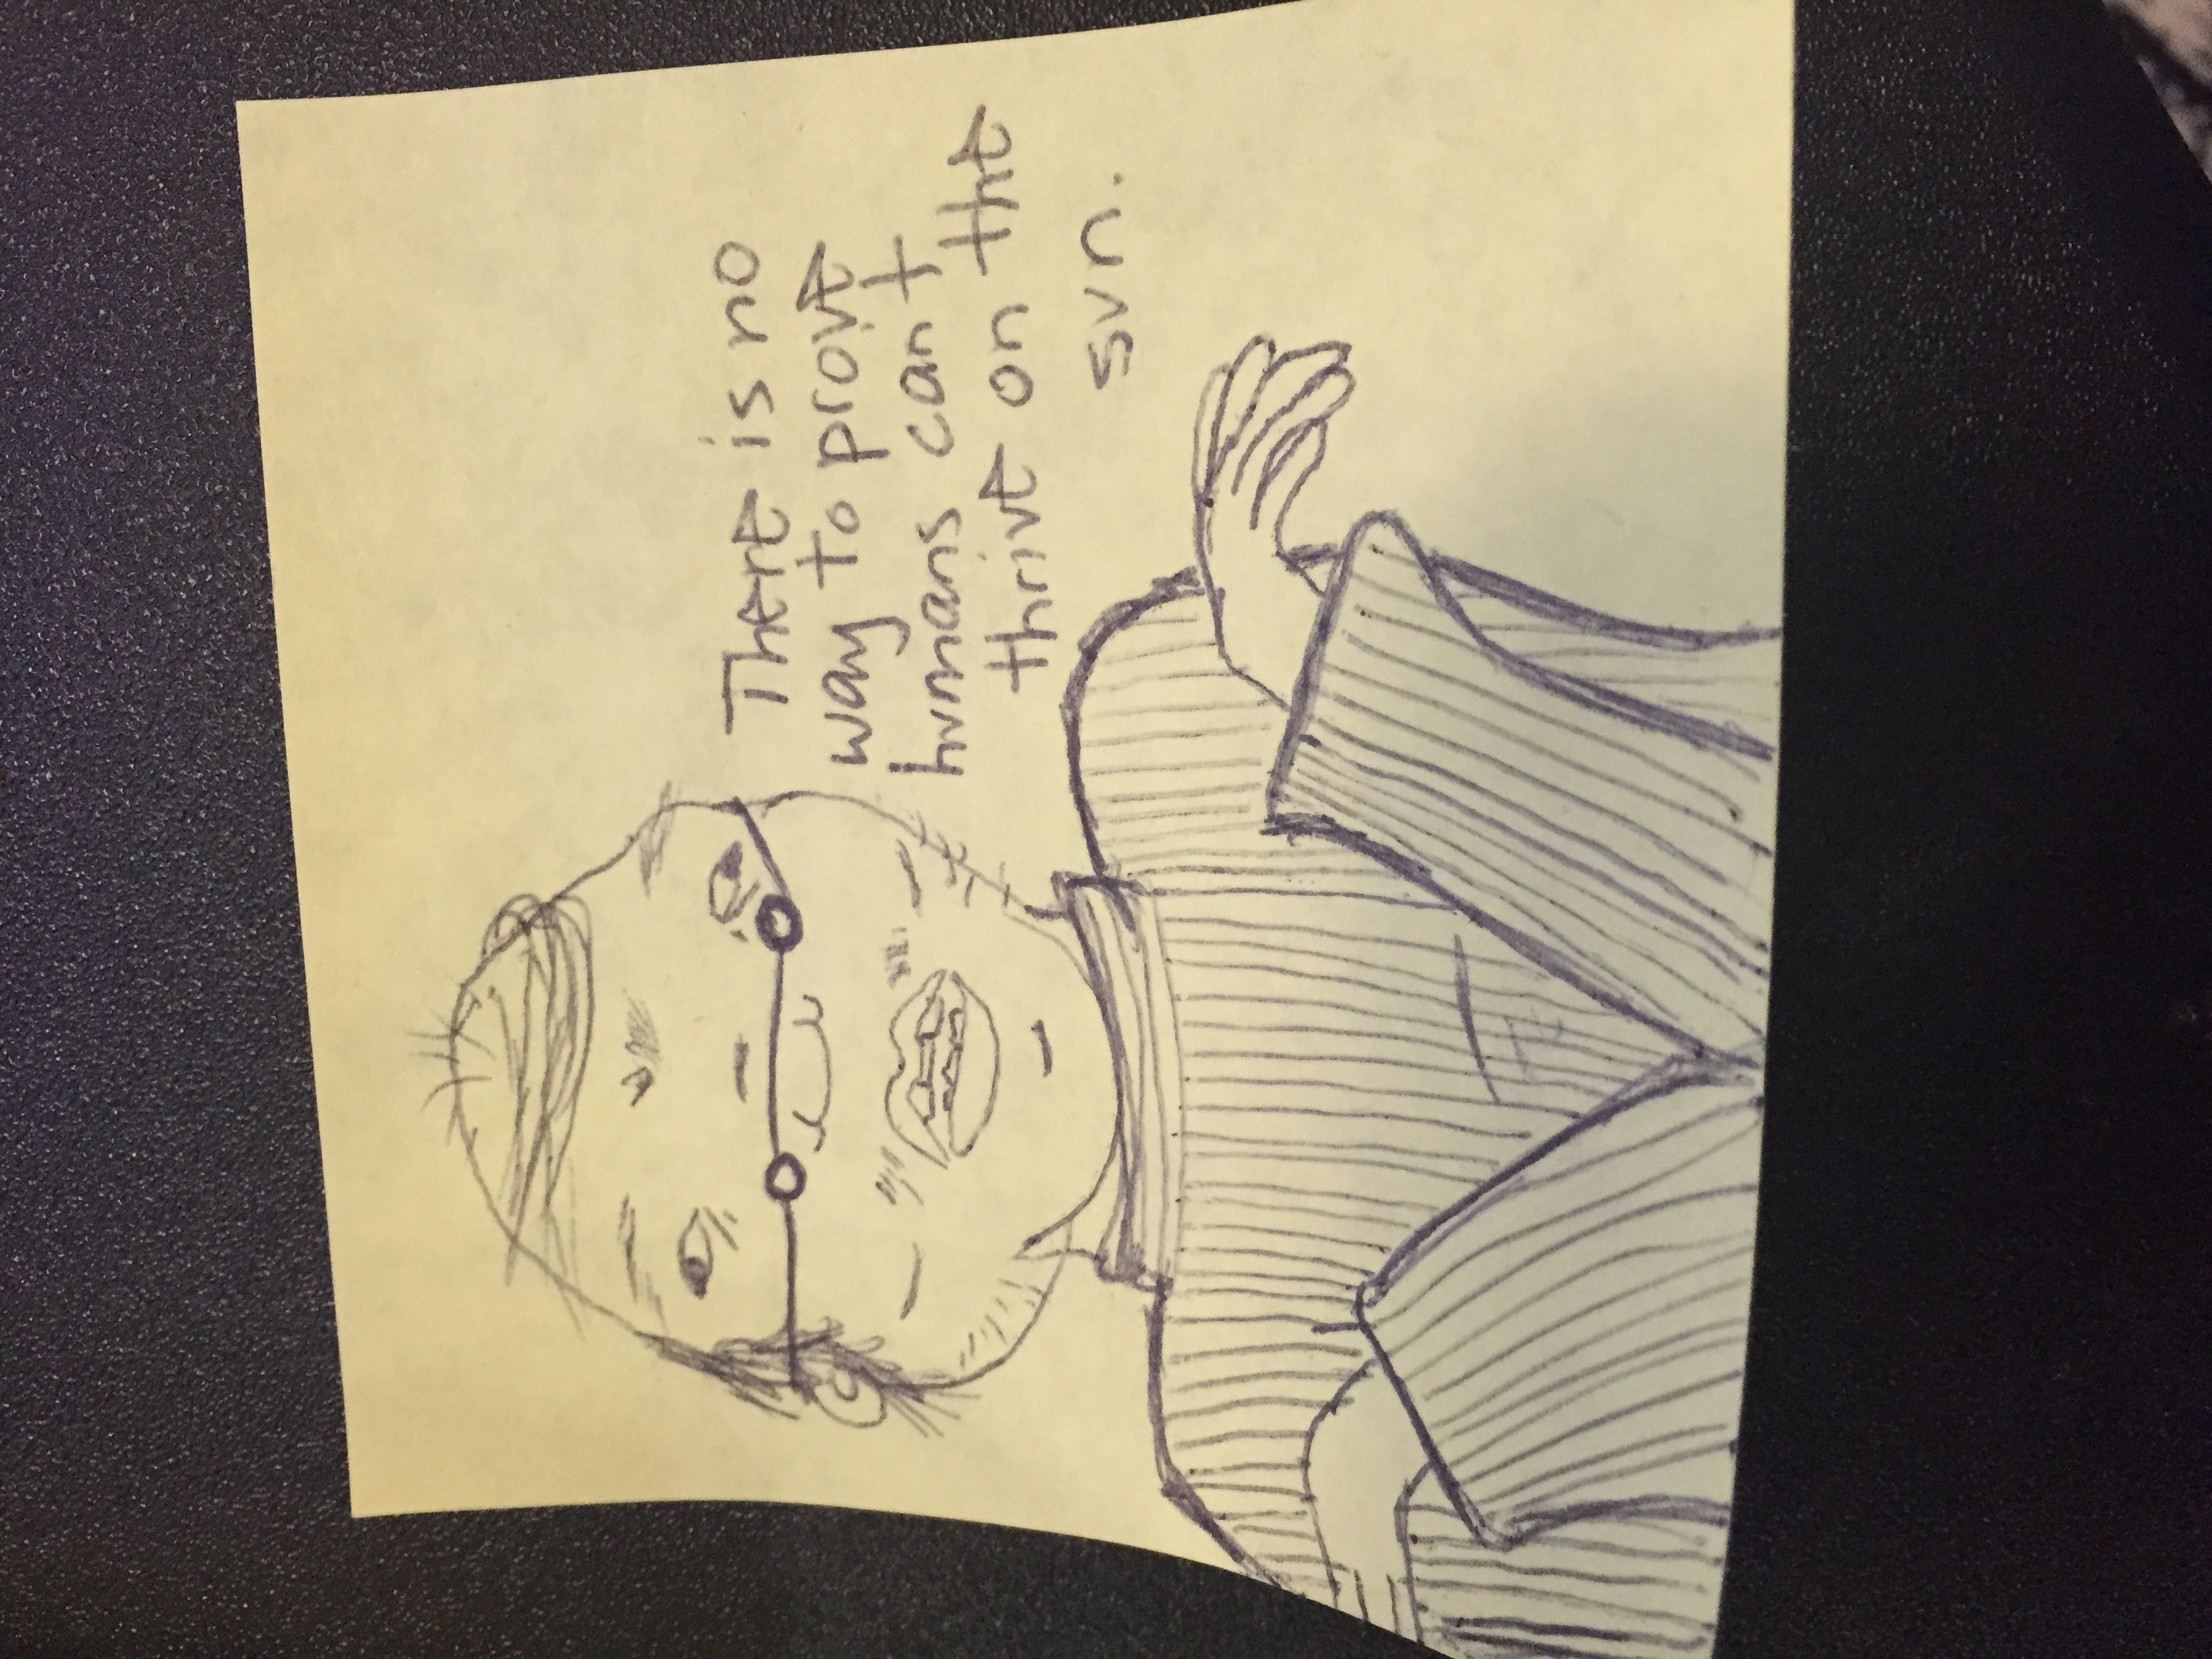 There is no
way to prove
humans can't
thrive on the
sun.